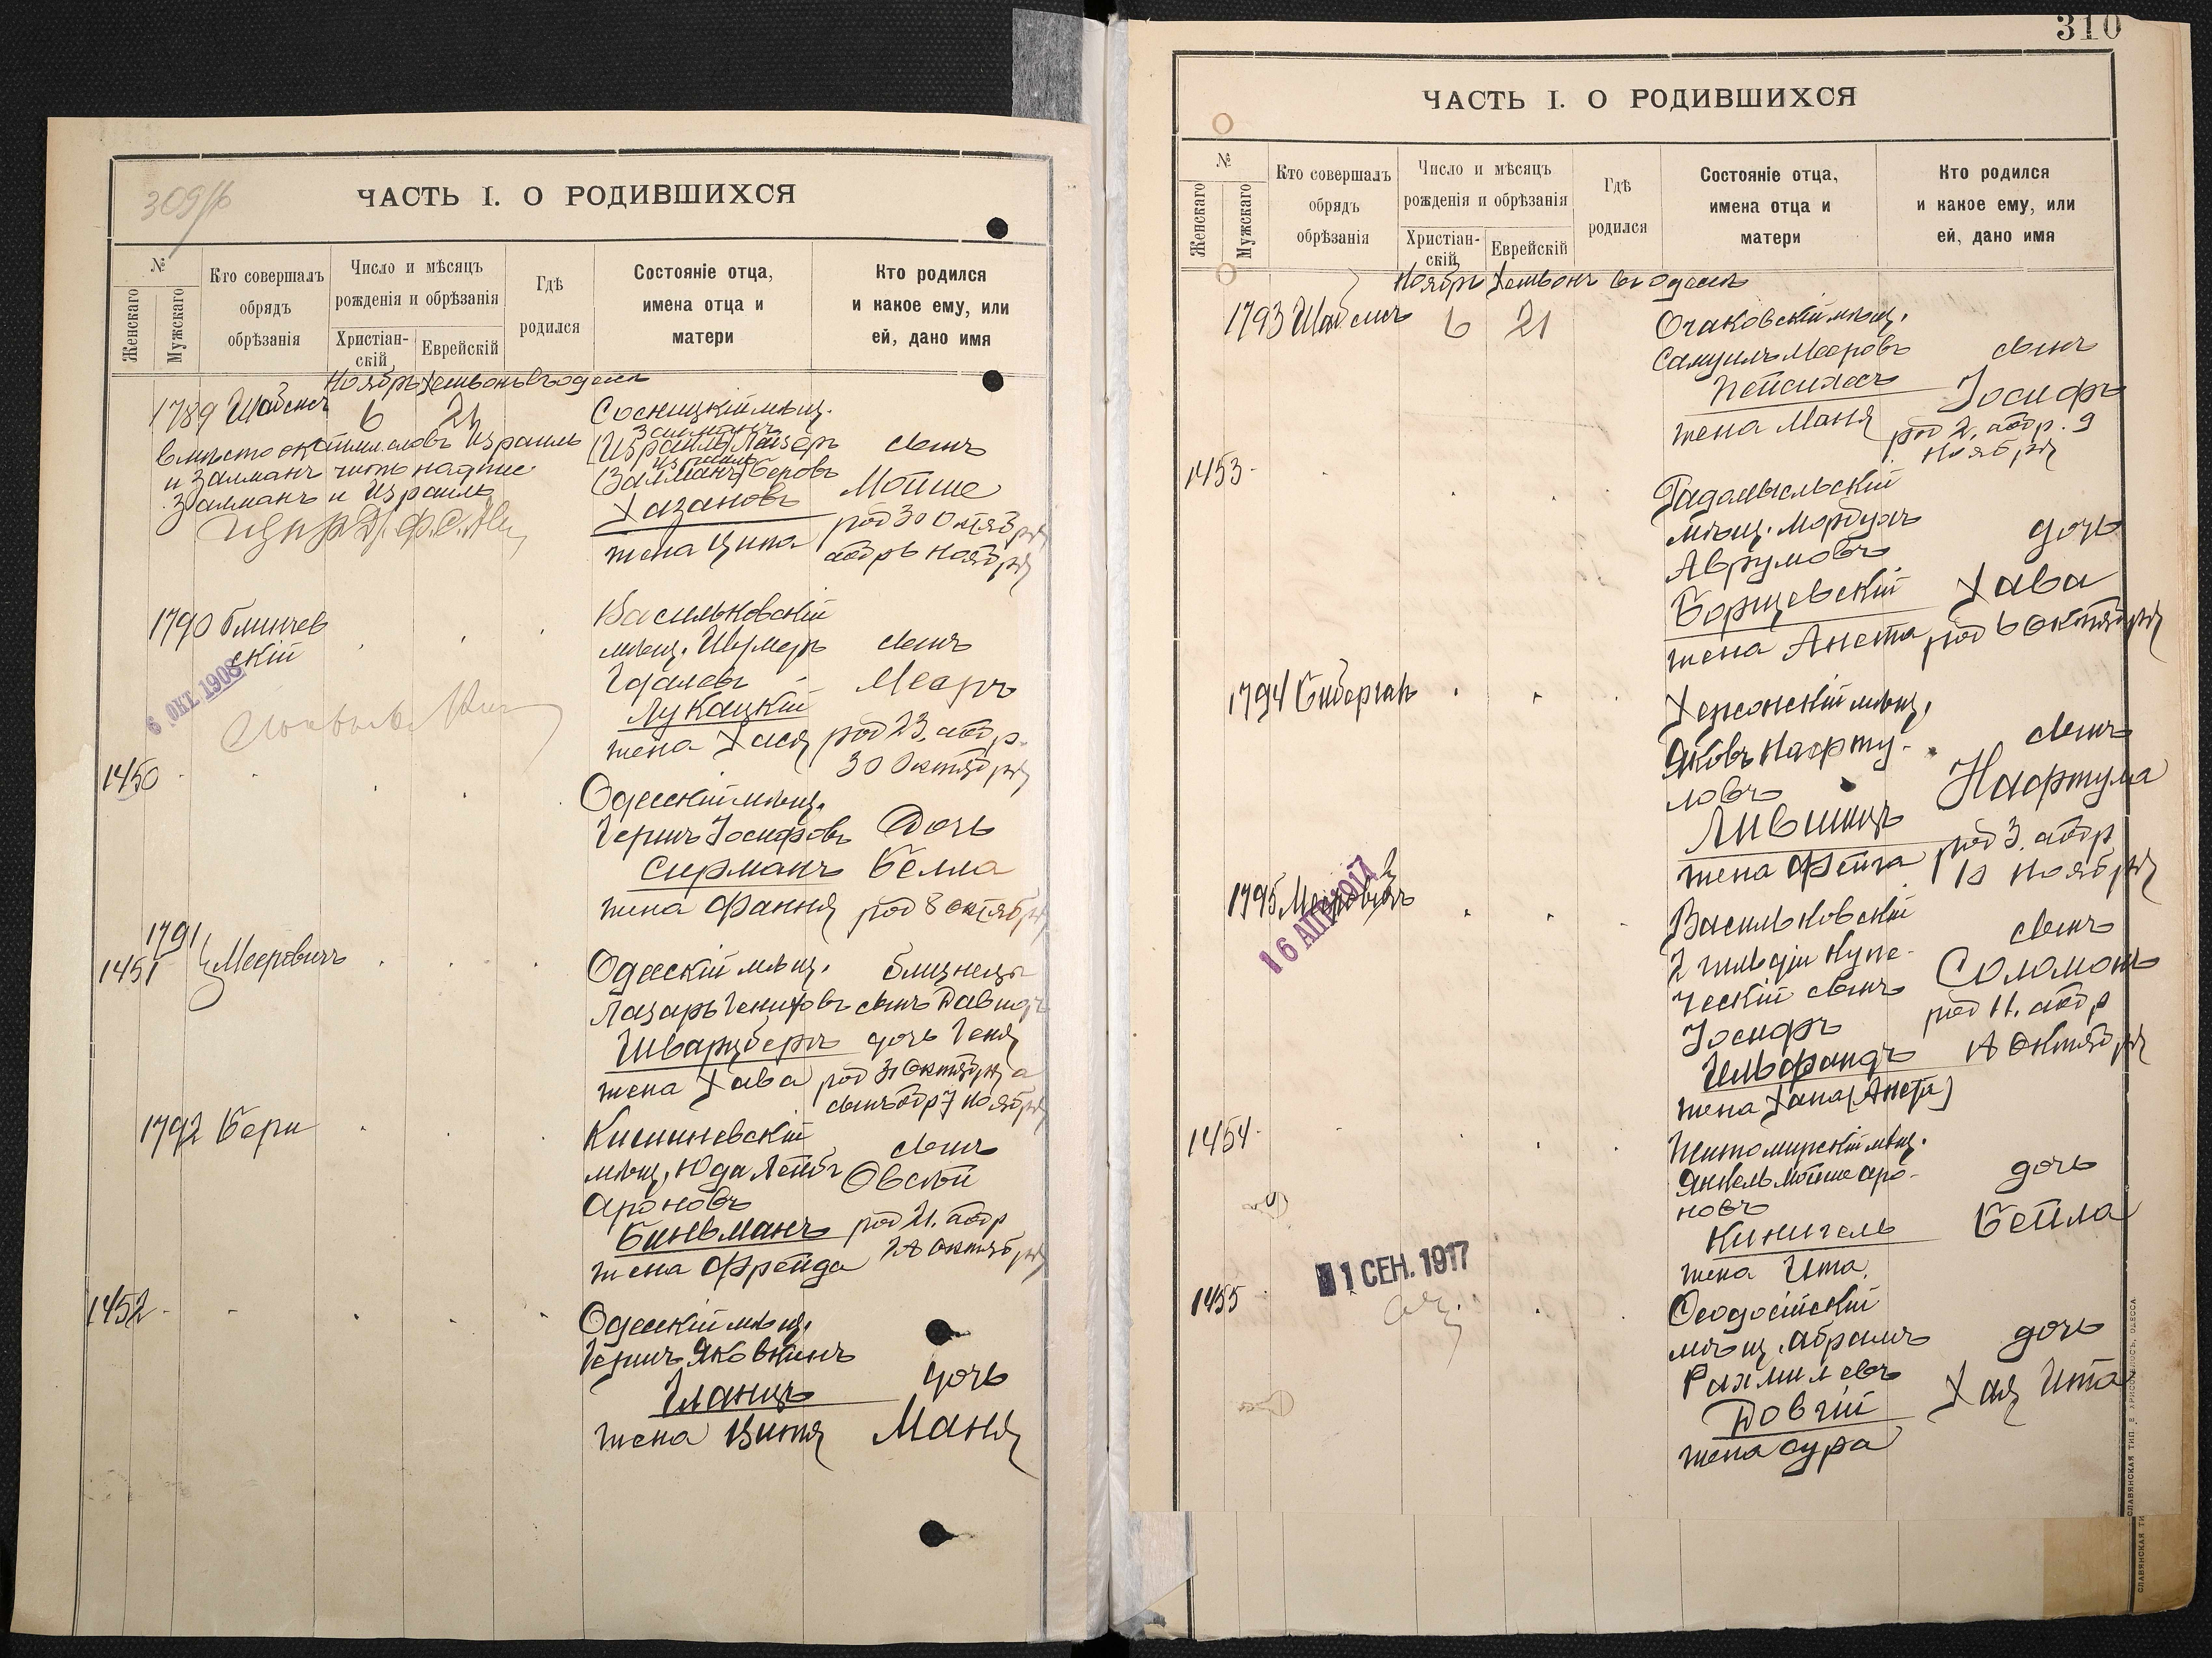 309/б
ЧАСТЬ I. О РОДИВШИХСЯ
№
Женскаго
Мужскаго
Кто совершалъ
обрядъ
обрѣзанія
Число и мѣсяцъ
рожденія и обрѣзанія
Христіан-
скій
Еврейскій
Гдѣ
родился
Состояніе отца,
имена отца и
матери
Кто родился
и какое ему, или
ей, дано имя
Ноябрь Хешвонъ Въ Одессѣ
1789 Шойхетъ 6 21
Сосницкій мѣщ.
Залманъ
(Израиль Лейзеръ
Израиль
(Залманъ) Беровъ
Хазановъ
жена Ципа
сынъ
Мойше
род 30 Октября
обр 6 Ноября
вмѣсто словъ Израиль
и Залманъ читать надпис
Залманъ и Израиль
1790
скій
6 ОКТ 1908
Васильковскій
мѣщ. Шумеръ
Гдалевъ
Лукацкій
жена Хася
сынъ
Меаръ
род 23. обр.
30 Октября
1450
Одесскій мѣщ.
Гершъ Іосифовъ
Сирманъ
жена Фання
Дочь
Бейла
род 8 Октября
1791
1451 Мееровичъ
Одесскій мѣщ.
Лазарь
Шварцбергъ
жена Хава
близнецы
сынъ Давидъ
дочь Геня
род 31 Октября а
сынъ обр 7 Ноября
1792 Бери
Кишиневскій
мѣщ. Юда Лейбъ
Ароновъ
Биньманъ
жена Фрейда
сынъ
Овсѣй
род 21. обр
28 Октября
1452
Одесскій мѣщ.
Гершъ Яковкинъ
Гланцъ
жена Витя
дочь
Маня
310
ЧАСТЬ I. О РОДИВШИХСЯ
№
Женскаго
Мужскаго
Кто совершалъ
обрядъ
обрѣзанія
Число и мѣсяцъ
рожденія и обрѣзанія
Христіан-
скій
Еврейскій
Гдѣ
родился
Состояніе отца,
имена отца и
матери
Кто родился
и какое ему, или
ей, дано имя
Ноябрь Хешвонъ въ Одессѣ
1793 6 21
Очаковскій мѣщ.
Самуилъ Мееровъ
Пейсихесъ
жена Маня
сынъ
Іосифъ
род 2. обр. 9
Ноября
1453
Радомысльскій
мѣщ. Мордухъ
Аврумовъ
Борщевскій
жена Анета
дочь
Хава
род 6 Октября
1794 Бибергалъ
Херсонскій мѣщ.
Яковъ Нафту-
ловъ
Лившицъ
жена Фейга
сынъ
Нафтула
род 3. обр
10 Ноября
1795 Мееровичъ
16 АПР 1917
Васильковскій
2 гильдіи купе-
ческій сынъ
Іосифъ
Гельфандъ
жена Хана (Анета)
сынъ
Соломонъ
род 11. обр
18 Октября
1454
Житомирскій мѣщ.
Янкель Мойше Аро-
новъ
Кишгель
жена Ита
дочь
Бейла
1 СЕН. 1917
1455
Ѳеодосійскій
мѣщ. Абрамъ
Рахмилевъ
Довгій
жена Сура
дочь
Хая Ита
СЛАВЯНСКАЯ ТИП. Е. ХРИСОГЕЛОСЪ, ОДЕССА
СЛАВЯНСКАЯ ТИ